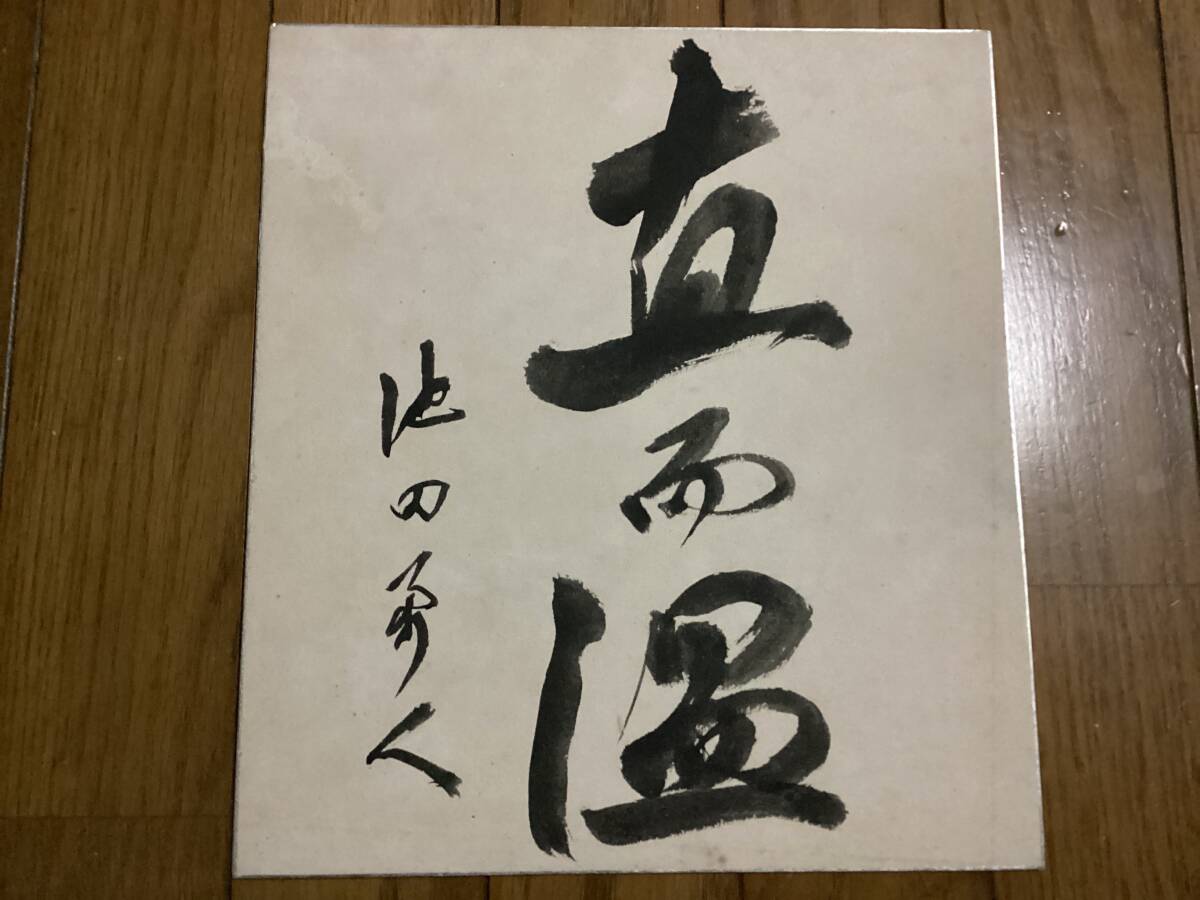 直而温
池田勇人